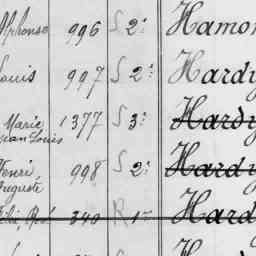 Alphonse 996 S 2: Hamon
Louis 997 S 2: Hardy
Marie 1377 S 3: Hardy
Jean Louis
Henri 998 S 2: Hardy
Auguste
340 R 1: Hardy